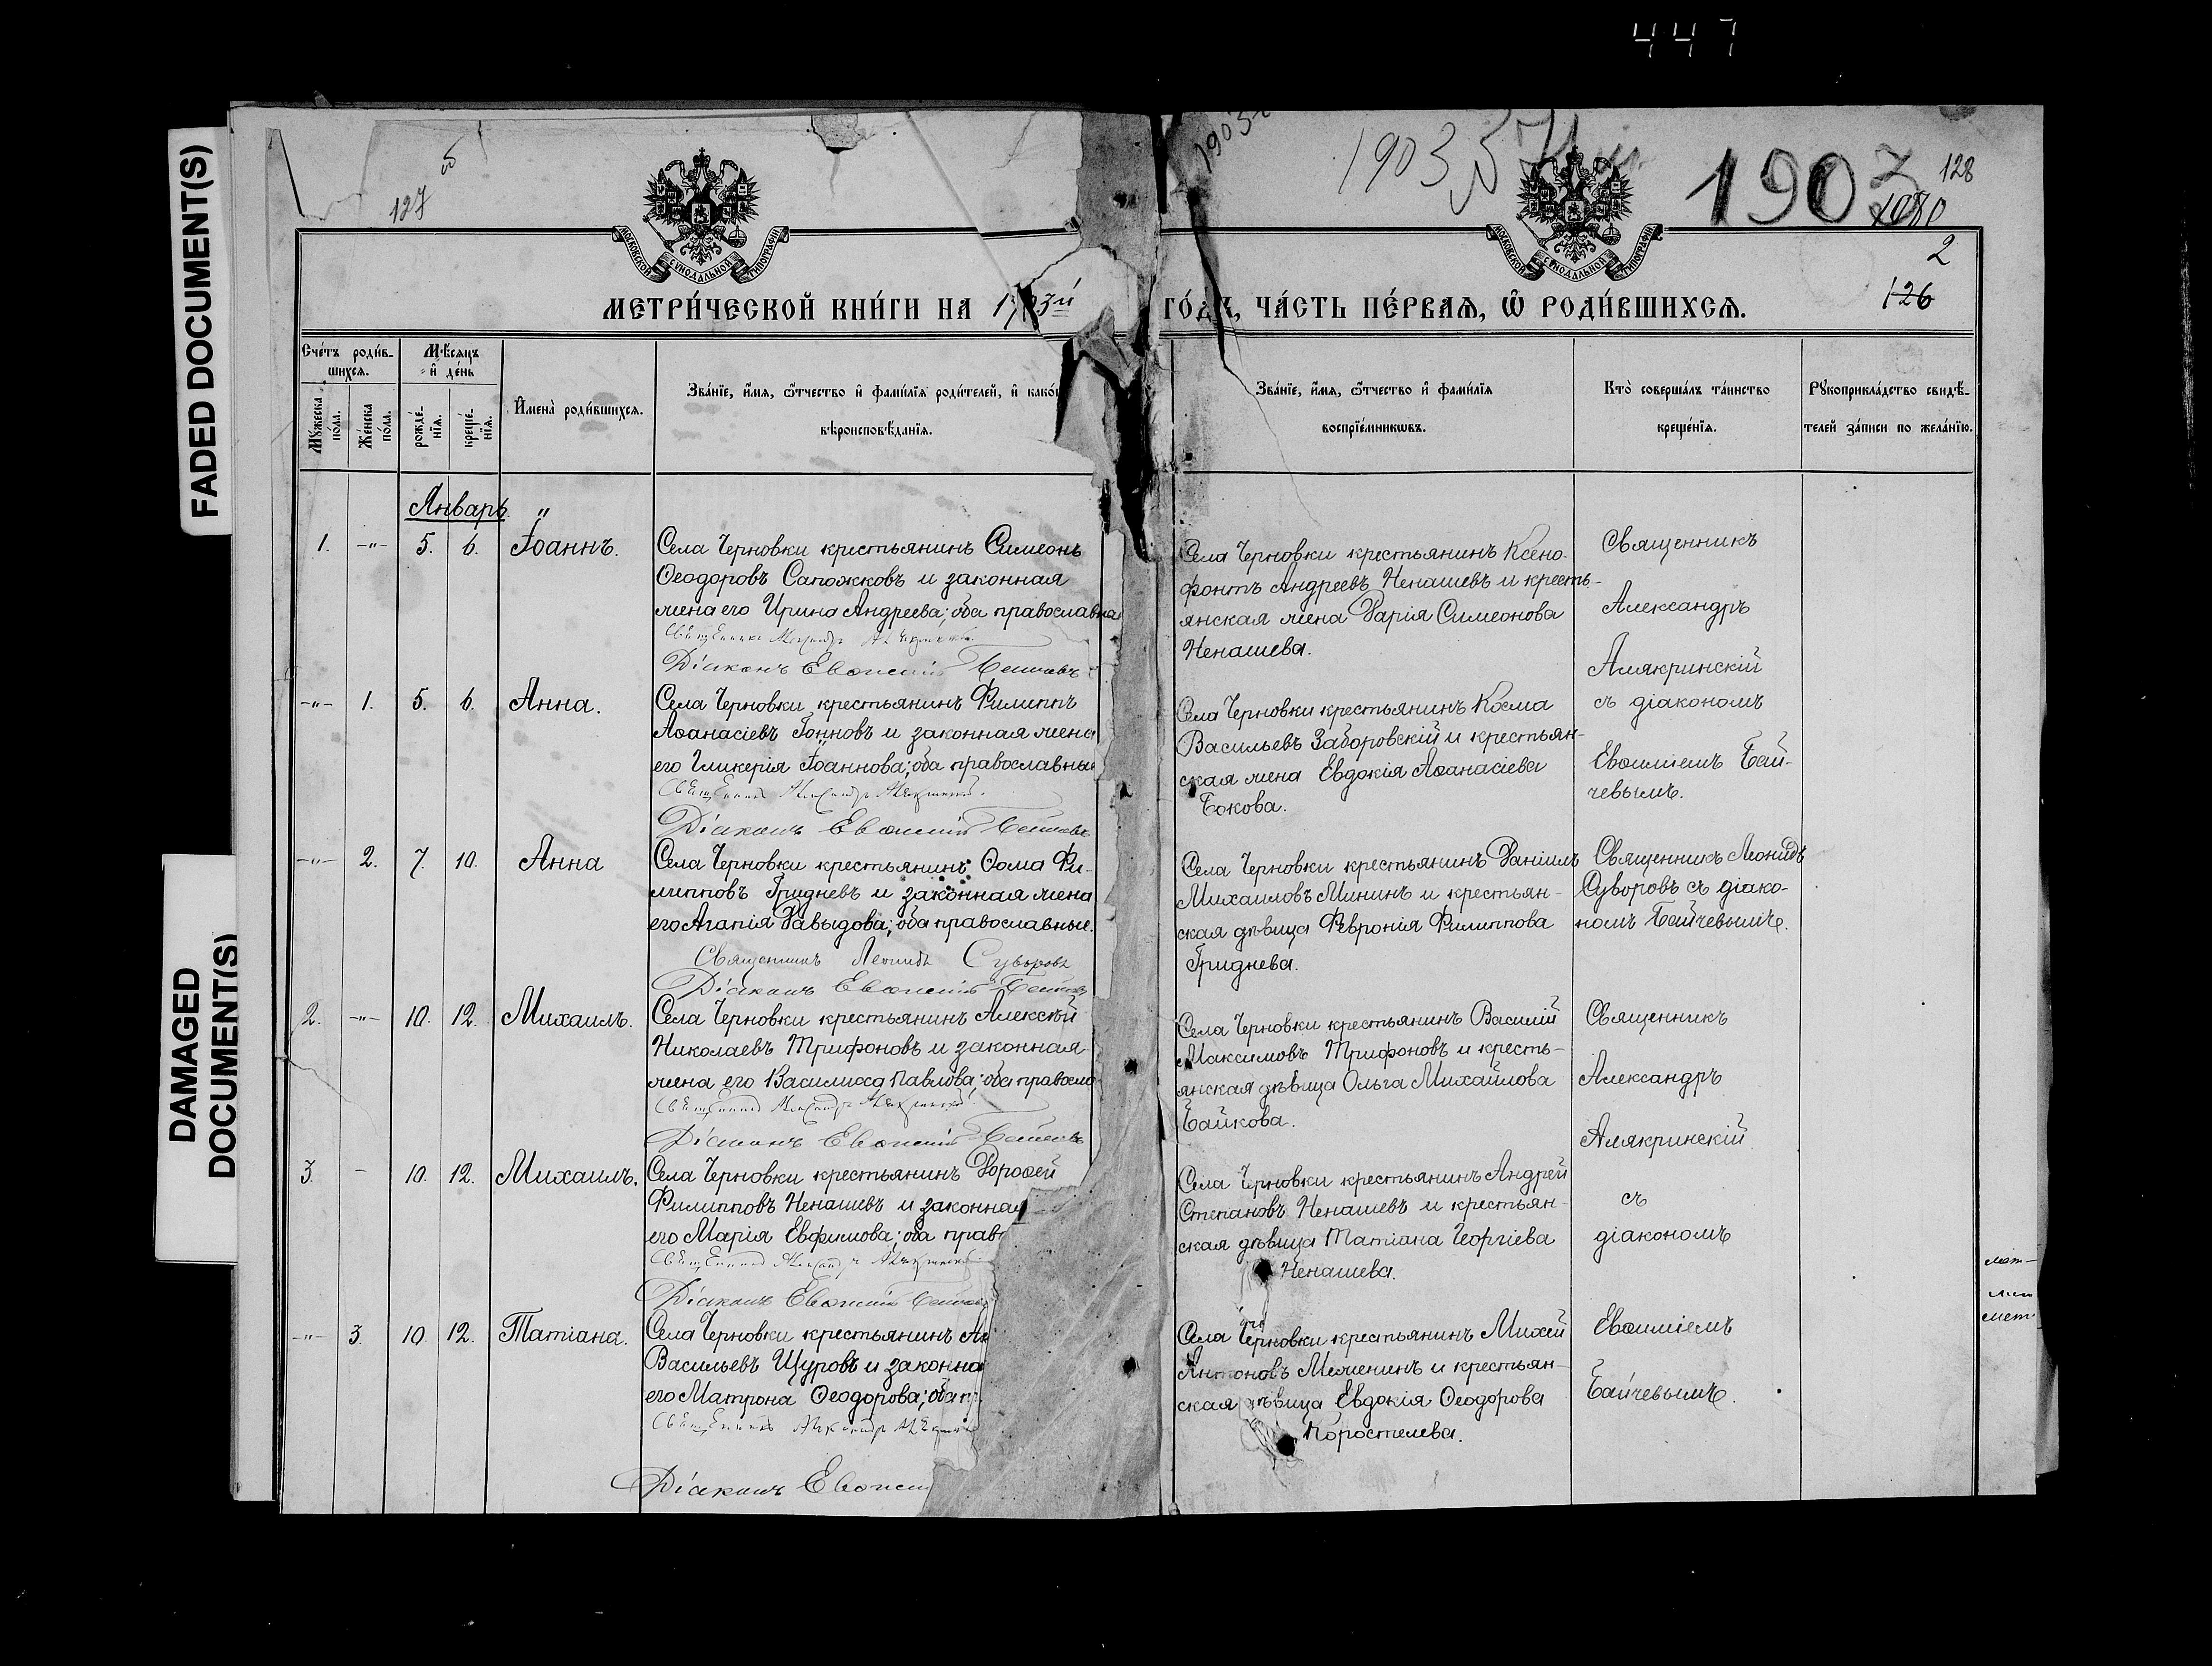 447
FADED DOCUMENT(S)
DAMAGED
DOCUMENT(S)
127
1903
1903
1903
128
2
126
МОСКОВСКОЙ СѴНОДАЛЬНОЙ ТИПОГРАФІИ
МОСКОВСКОЙ СѴНОДАЛЬНОЙ ТИПОГРАФІИ
МЕТРИ́ЧЕСКОЙ КНИ́ГИ НА 1903й ГО́ДЪ, ЧА́СТЬ ПЕ́РВАѦ, Ѿ РОДИ́ВШИХСѦ.
Сче́тъ роди́в-
шихсѧ.
Мѣ́сѧцъ
и де́нь
Мꙋ́жеска по́ла.
Же́нска по́ла.
рожде́-
нїѧ.
креще́-
нїѧ.
И҆мена̀ роди́вшихсѧ.
Зва́нїе, и҆́мѧ, ѻ҆́тчество и҆ фами́лїѧ роди́телей, и҆ како́
вѣроисповѣ́данїѧ.
Зва́нїе, и҆́мѧ, ѻ҆́тчество и҆ фами́лїѧ
воспрїе́мникѡвъ.
Кто̀ соверша́лъ та́инство
креще́нїѧ.
Рꙋкоприкла́дство свидѣ́-
телей за́писи по жела́нїю.
Январь „
1. -„- 5. 6. Іоаннъ.
Села Черновки крестьянинъ Симеонъ
Ѳеодоровъ Сапожковъ и законная
жена его Ирина Андреева; оба православна
Священникъ Александръ Алякринскій
Діаконъ Евѳимій Байчевъ
Села Черновки крестьянинъ Ксено-
фонтъ Андреевъ Ненашевъ и кресть-
янская жена Дарія Симеонова
Ненашева.
Священникъ
Александръ
Алякринскій
съ діакономъ
Евѳиміемъ Бай-
чевымъ.
-„- 1. 5. 6. Анна.
Села Черновки крестьянинъ Филиппъ
Аѳанасіевъ Іонновъ и законная жена
его Гликерія Іоаннова; оба православные
Священникъ Александръ Алякринскій.
Діаконъ Евѳимій Байчевъ
Села Черновки крестьянинъ Косма
Васильевъ Заборовскій и крестьян-
ская жена Евдокія Аѳанасіева
Бокова.
-„- 2. 7. 10. Анна
Села Черновки крестьянинъ Ѳома Фи-
липповъ Гридневъ и законная жена
его Агапія Давыдова; оба православные.
Священникъ Леонидъ Суворовъ
Діаконъ Евѳимій Байчевъ
Села Черновки крестьянинъ Даніилъ
Михаиловъ Мининъ и крестьян-
ская дѣвица Февронія Филиппова
Гриднева.
Священникъ Леонидъ
Суворовъ съ діако-
номъ Байчевымъ.
2. -„- 10. 12. Михаилъ.
Села Черновки крестьянинъ Алексѣй
Николаевъ Трифоновъ и законная
жена его Василиса Павлова; оба правосла
Священникъ Александръ Алякринскій
Діаконъ Евѳимій Байчевъ
Села Черновки крестьянинъ Василій
Максимовъ Трифоновъ и кресть-
янская дѣвица Ольга Михайлова
Байкова.
Священникъ
Александръ
Алякринскій
съ
діакономъ
Евѳиміемъ
Байчевымъ.
3. - 10. 12. Михаилъ.
Села Черновки крестьянинъ Дороѳей
Филипповъ Ненашевъ и законная
его Марія Евфимова; оба прав
Священникъ Александръ Алякринскій
Діаконъ Евѳимій Байчевъ
Села Черновки крестьянинъ Андрей
Степановъ Ненашевъ и крестьян-
ская дѣвица Татіана Георгіева
Ненашева.
-„- 3. 10. 12. Татіана.
Села Черновки крестьянинъ
Васильевъ Щуровъ и законна
его Матрона Ѳеодорова; оба п
Священникъ Александръ Алякринскій
Діаконъ Евѳими
Села Черновки крестьянинъ Михей
Антоновъ Мелменинъ и крестьян-
ская дѣвица Евдокія Ѳеодорова
Коростелева.